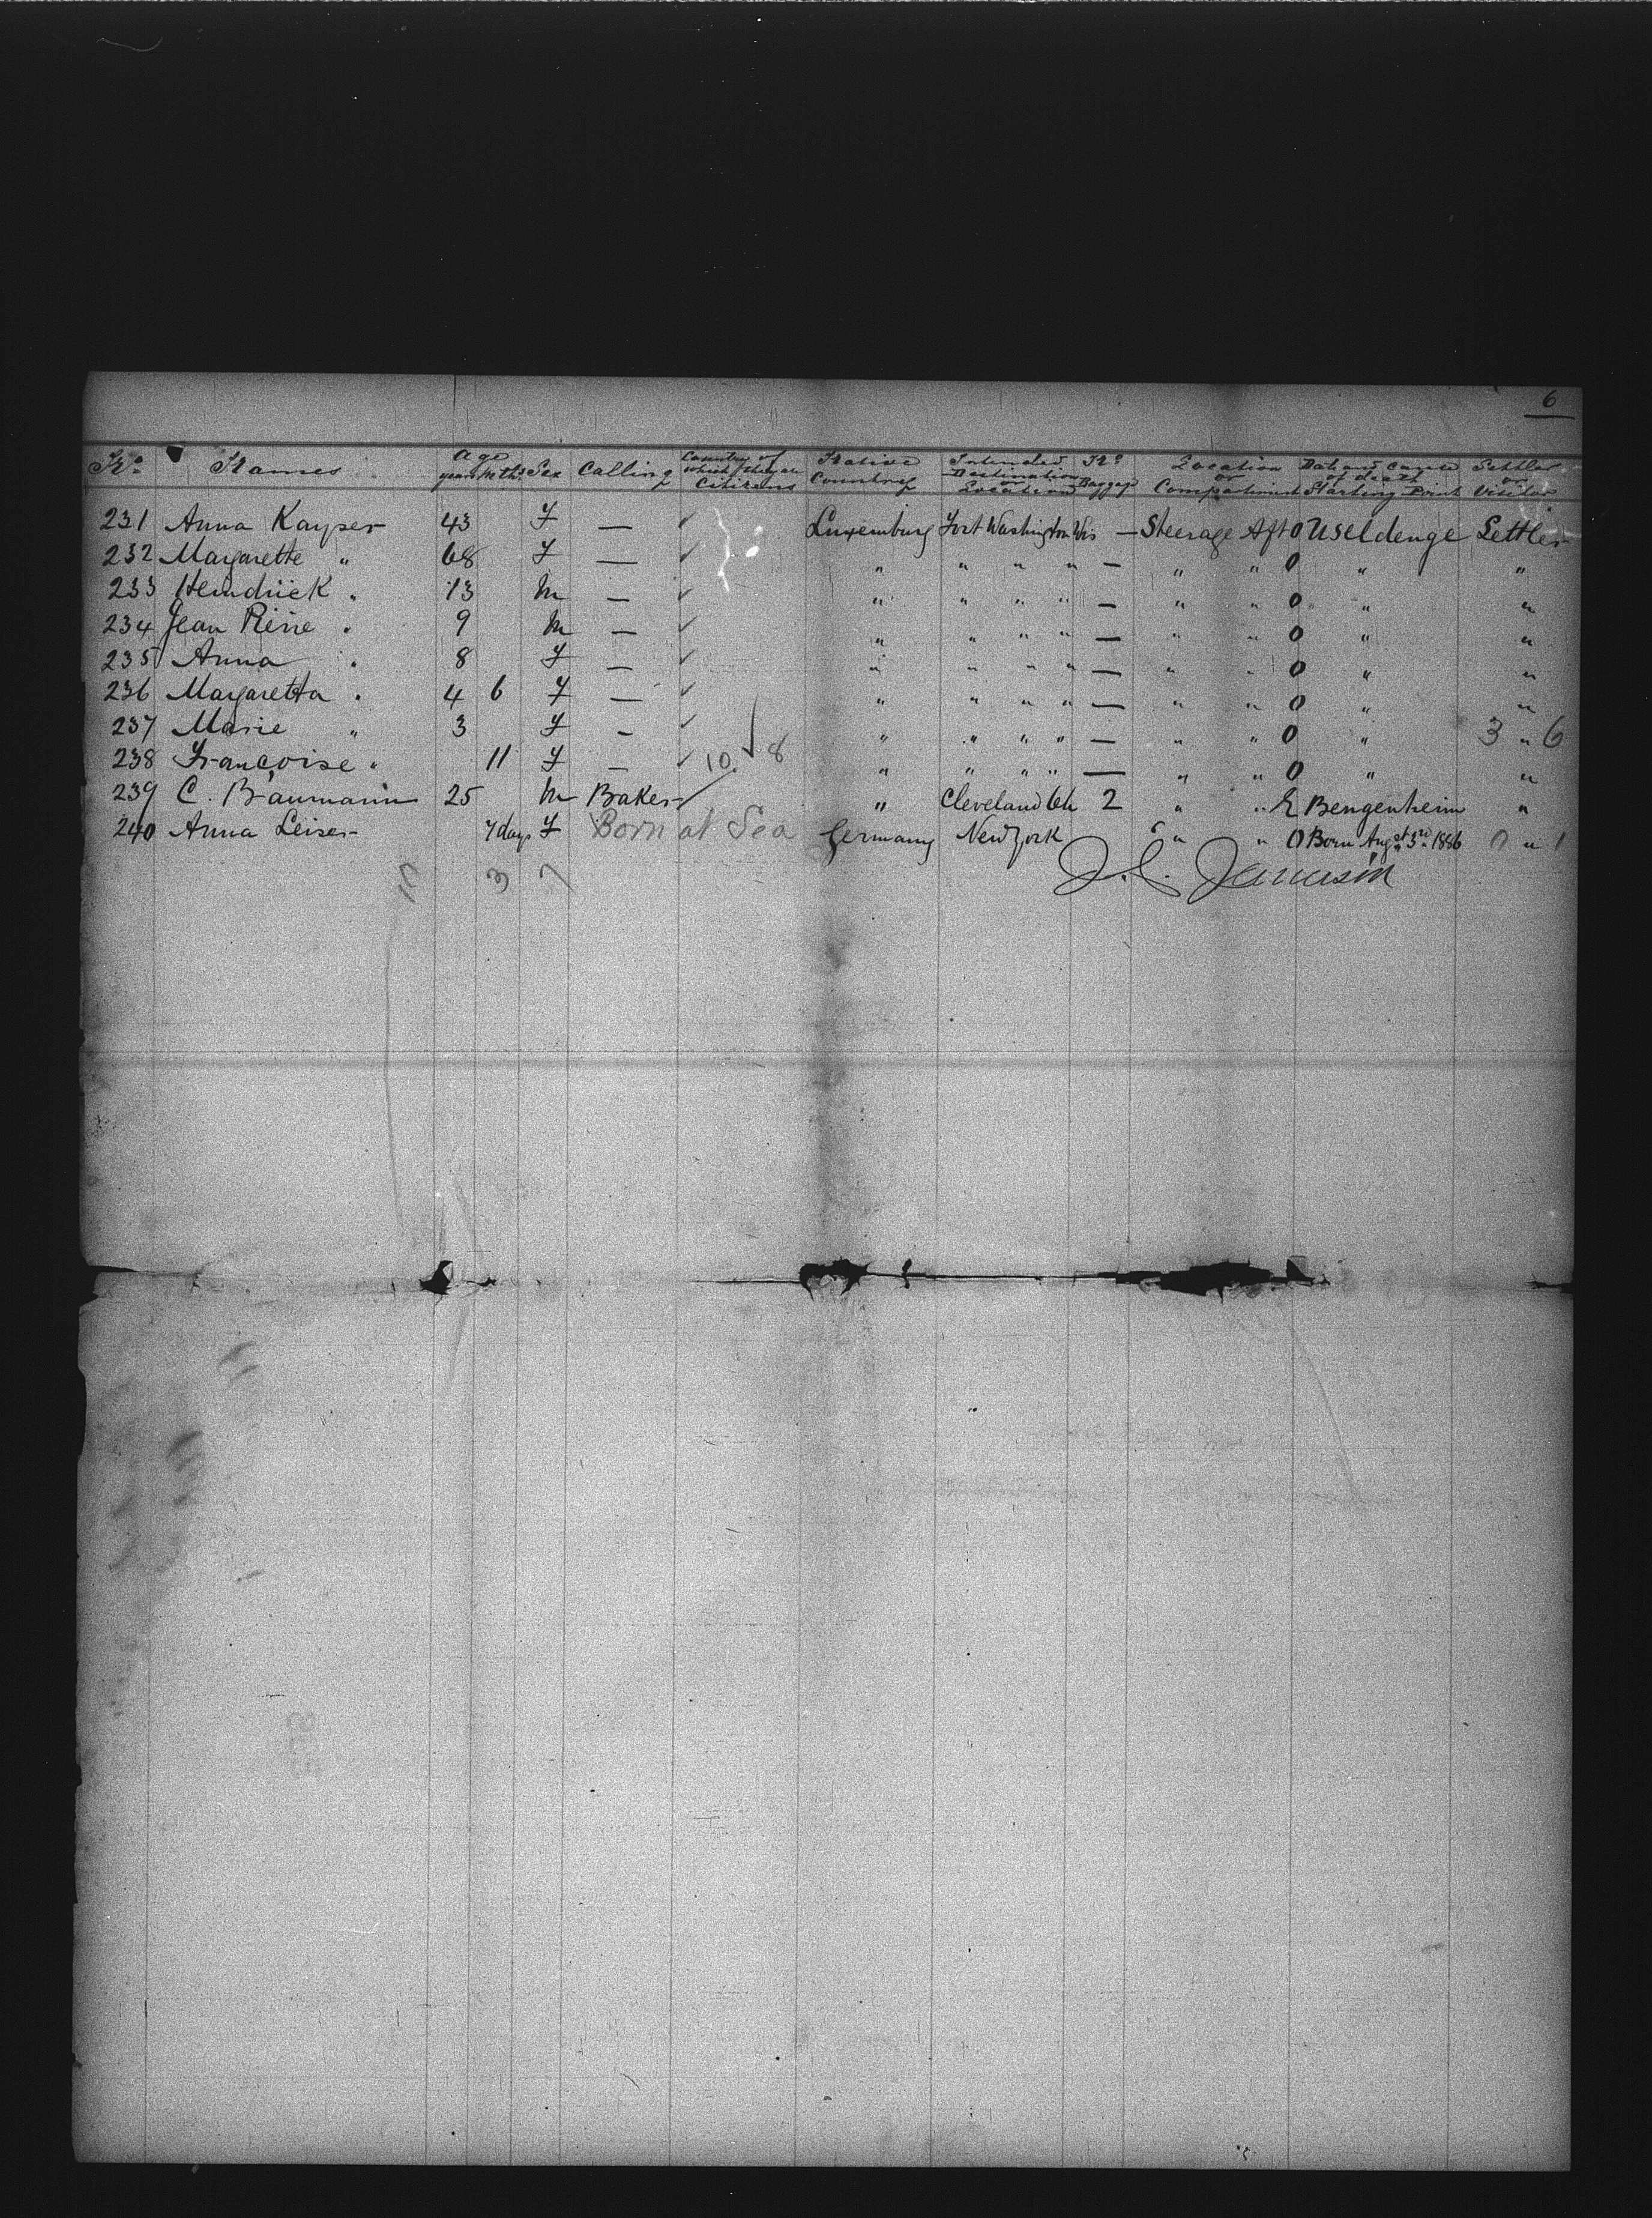 6
No. Names Age years Mths Sex Calling Country of which they are Citizens Native Country Intended Destination or Location No. Baggage Location or Compartment Date and Cause of death Starting Point Settler or Visitor
231 Anna Kayser 43 F — ✓ Luxemburg Fort Washington Wis — Steerage Aft O Useldenge Settler
232 Margarette " 68 F — ✓ " " " " — " " O " "
233 Hendrick " 13 M — ✓ " " " " — " " O " "
234 Jean Pierre " 9 M — ✓ " " " " — " " O " "
235 Anna " 8 F — ✓ " " " " — " " O " "
236 Margaretta " 4 6 F — ✓ " " " " — " " O " "
237 Marie " 3 F — ✓ " " " " — " " O " 3 " 6
238 Françoise " 11 F — ✓ 10 8 " " " " — " " O " "
239 C. Baumann 25 M Baker " Cleveland Oh 2 " " E Bengenheim "
240 Anna Leiser 7 days F Born at Sea Germany New York " " O Born Augst 3rd 1886 0 " 1
10 3 7